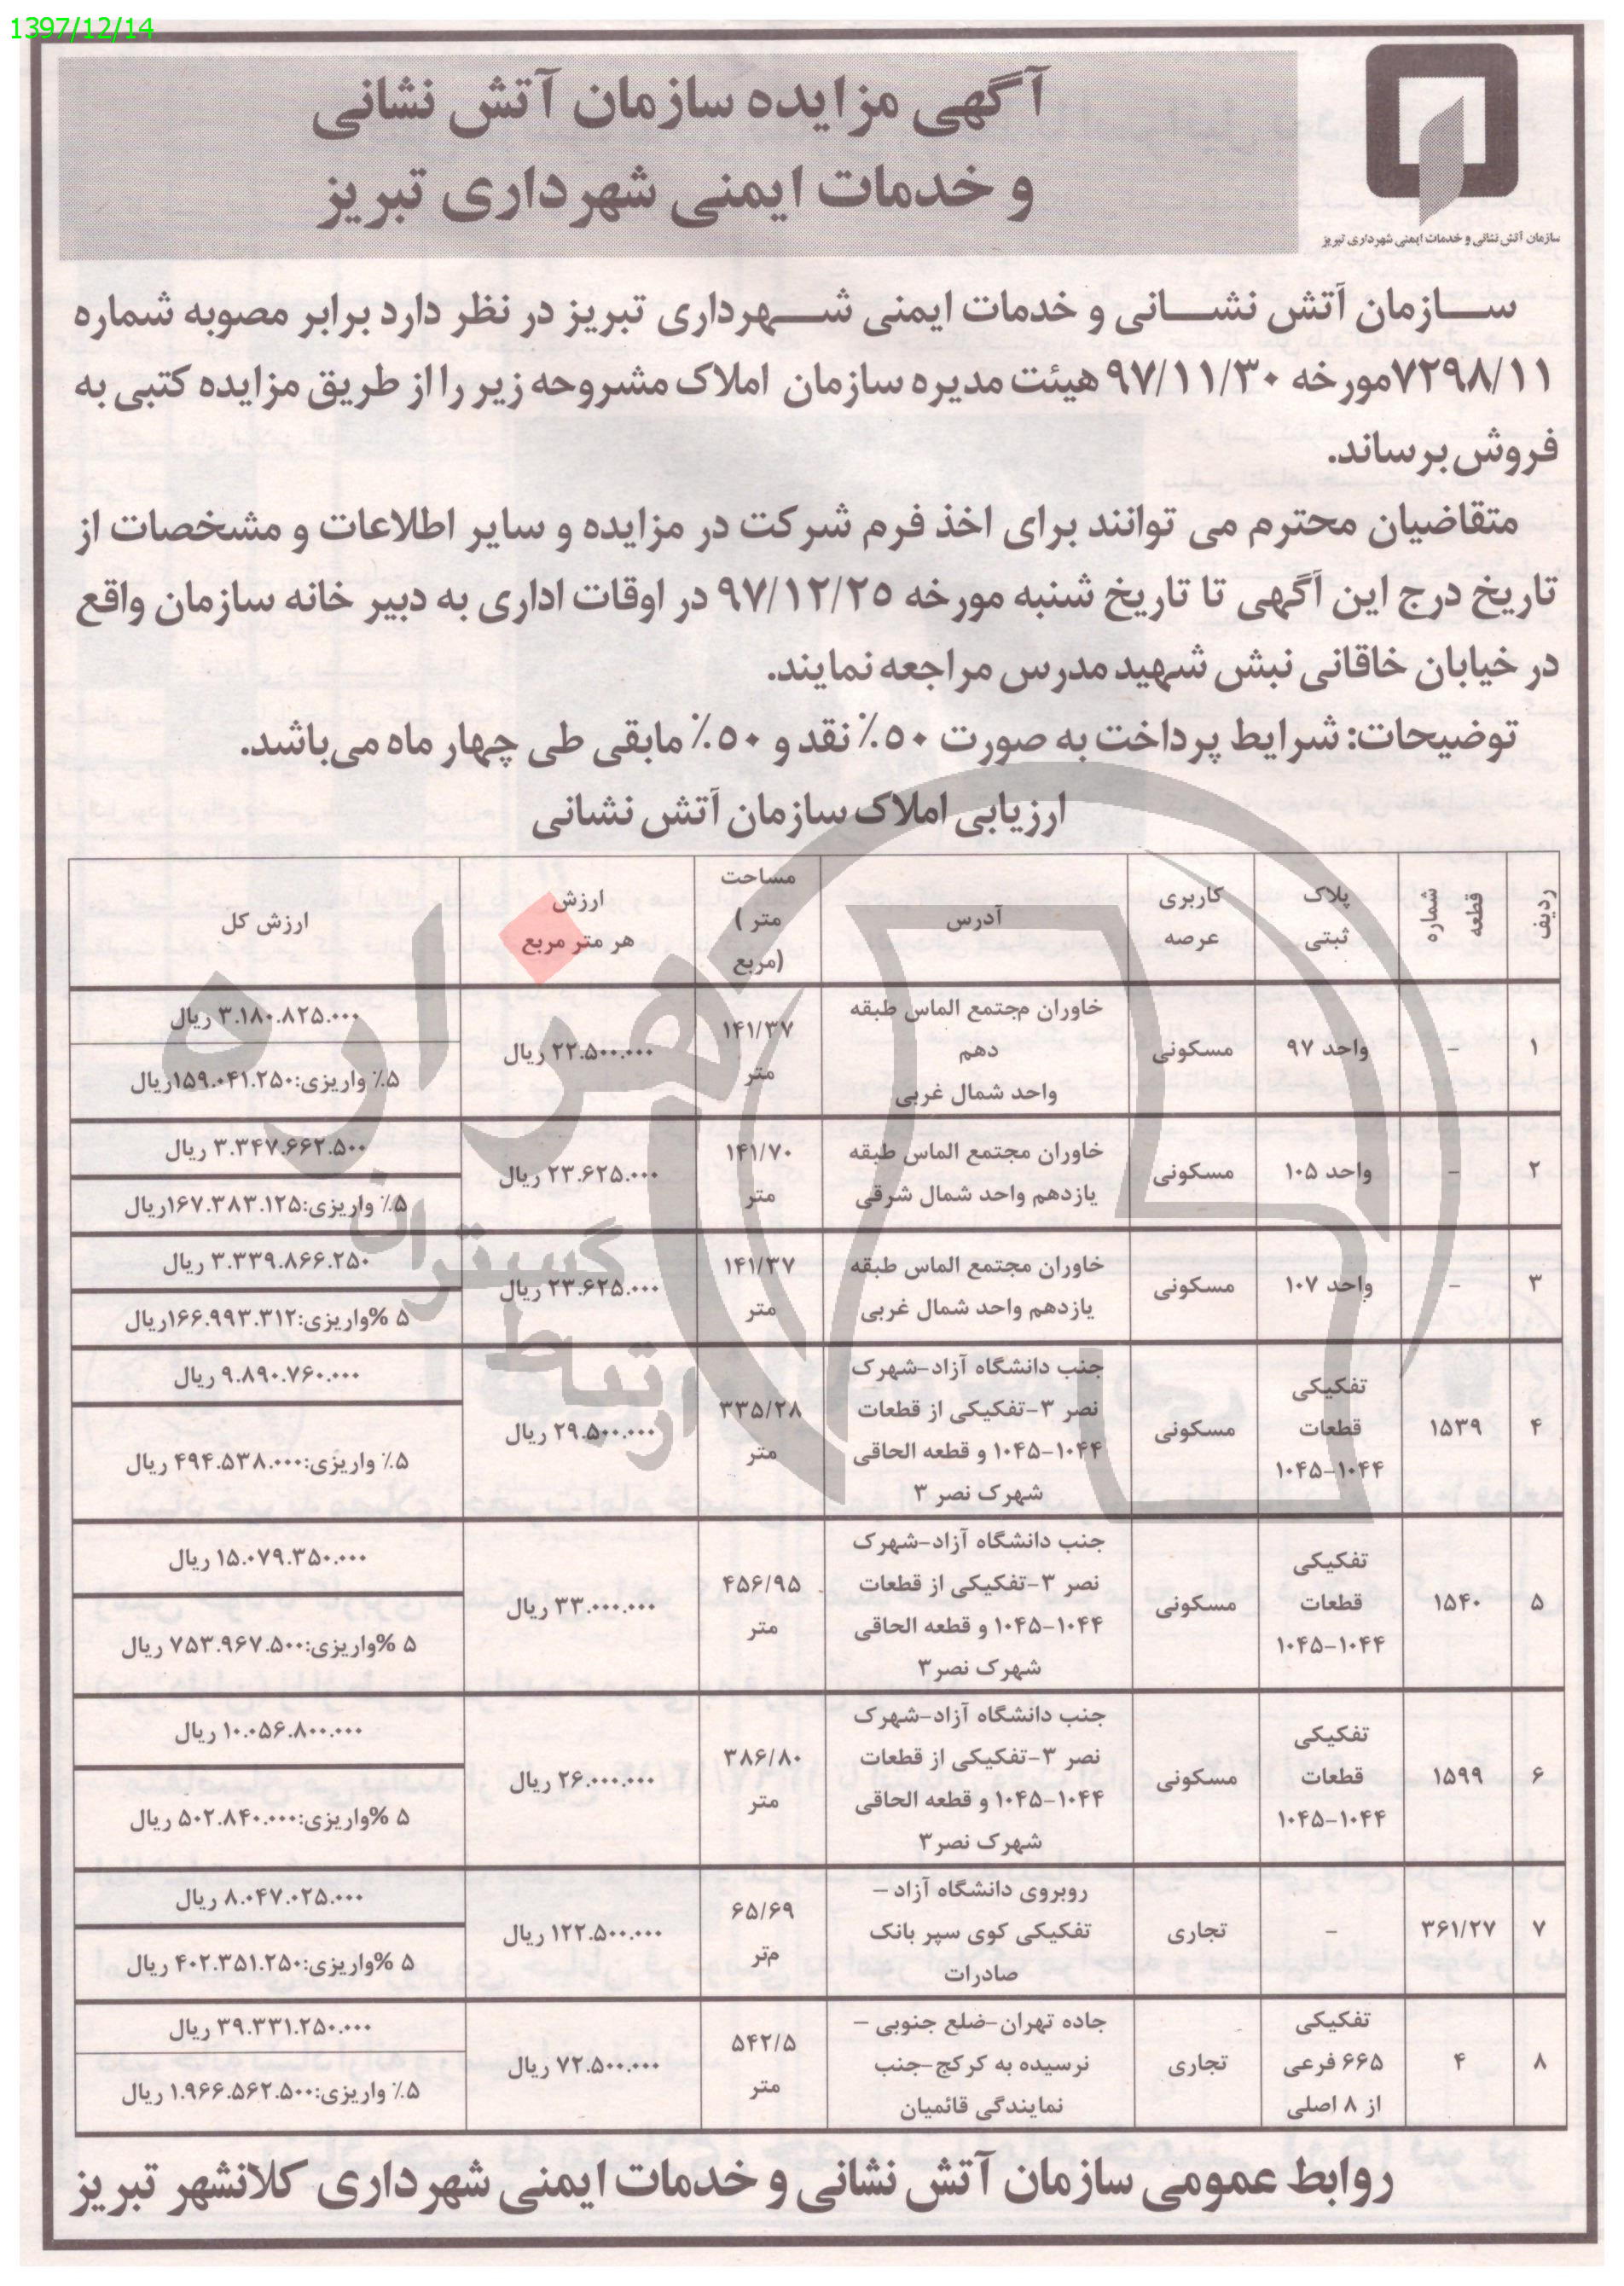 1397/12/14
آگهی مزایده سازمان آتش نشانی
و خدمات ایمنی شهرداری تبریز
سازمان آتش نشانی و خدمات ایمنی شهرداری تبریز
سازمان آتش نشانی و خدمات ایمنی شهرداری تبریز در نظر دارد برابر مصوبه شماره
۷۲۹۸/۱۱مورخه ۹۷/۱۱/۳۰ هیئت مدیره سازمان املاک مشروحه زیر را از طریق مزایده کتبی به
فروش برساند.
متقاضیان محترم می توانند برای اخذ فرم شرکت در مزایده و سایر اطلاعات و مشخصات از
تاریخ درج این آگهی تا تاریخ شنبه مورخه ۹۷/۱۲/۲۵ در اوقات اداری به دبیر خانه سازمان واقع
در خیابان خاقانی نبش شهید مدرس مراجعه نمایند.
توضیحات: شرایط پرداخت به صورت ۵۰٪ نقد و ۵۰٪ مابقی طی چهار ماه می‌باشد.
ارزیابی املاک سازمان آتش نشانی
ردیف شماره قطعه پلاک ثبتی کاربری عرصه آدرس مساحت ( متر مربع) ارزش هر متر مربع ارزش کل
۱ – واحد ۹۷ مسکونی خاوران مجتمع الماس طبقه دهم واحد شمال غربی ۱۴۱/۳۷ متر ۲۲.۵۰۰.۰۰۰ ریال ۳.۱۸۰.۸۲۵.۰۰۰ ریال
۵٪ واریزی:۱۵۹.۰۴۱.۲۵۰ریال
۲ – واحد ۱۰۵ مسکونی خاوران مجتمع الماس طبقه یازدهم واحد شمال شرقی ۱۴۱/۷۰ متر ۲۳.۶۲۵.۰۰۰ ریال ۳.۳۴۷.۶۶۲.۵۰۰ ریال
۵٪ واریزی:۱۶۷.۳۸۳.۱۲۵ریال
۳ – واحد ۱۰۷ مسکونی خاوران مجتمع الماس طبقه یازدهم واحد شمال غربی ۱۴۱/۳۷ متر ۲۳.۶۲۵.۰۰۰ ریال ۳.۳۳۹.۸۶۶.۲۵۰ ریال
۵ %واریزی:۱۶۶.۹۹۳.۳۱۲ریال
۴ ۱۵۳۹ تفکیکی قطعات ۱۰۴۴-۱۰۴۵ مسکونی جنب دانشگاه آزاد-شهرک نصر ۳-تفکیکی از قطعات ۱۰۴۴-۱۰۴۵ و قطعه الحاقی شهرک نصر ۳ ۳۳۵/۲۸ متر ۲۹.۵۰۰.۰۰۰ ریال ۹.۸۹۰.۷۶۰.۰۰۰ ریال
۵٪ واریزی:۴۹۴.۵۳۸.۰۰۰ ریال
۵ ۱۵۴۰ تفکیکی قطعات ۱۰۴۴-۱۰۴۵ مسکونی جنب دانشگاه آزاد-شهرک نصر ۳-تفکیکی از قطعات ۱۰۴۴-۱۰۴۵ و قطعه الحاقی شهرک نصر۳ ۴۵۶/۹۵ متر ۳۳.۰۰۰.۰۰۰ ریال ۱۵.۰۷۹.۳۵۰.۰۰۰ ریال
۵ %واریزی:۷۵۳.۹۶۷.۵۰۰ ریال
۶ ۱۵۹۹ تفکیکی قطعات ۱۰۴۴-۱۰۴۵ مسکونی جنب دانشگاه آزاد-شهرک نصر ۳-تفکیکی از قطعات ۱۰۴۴-۱۰۴۵ و قطعه الحاقی شهرک نصر۳ ۳۸۶/۸۰ متر ۲۶.۰۰۰.۰۰۰ ریال ۱۰.۰۵۶.۸۰۰.۰۰۰ ریال
۵ %واریزی:۵۰۲.۸۴۰.۰۰۰ ریال
۷ ۳۶۱/۲۷ – تجاری روبروی دانشگاه آزاد – تفکیکی کوی سپر بانک صادرات ۶۵/۶۹ متر ۱۲۲.۵۰۰.۰۰۰ ریال ۸.۰۴۷.۰۲۵.۰۰۰ ریال
۵ %واریزی:۴۰۲.۳۵۱.۲۵۰ ریال
۸ ۴ تفکیکی ۶۶۵ فرعی از ۸ اصلی تجاری جاده تهران-ضلع جنوبی – نرسیده به کرکج-جنب نمایندگی قائمیان ۵۴۲/۵ متر ۷۲.۵۰۰.۰۰۰ ریال ۳۹.۳۳۱.۲۵۰.۰۰۰ ریال
۵٪ واریزی:۱.۹۶۶.۵۶۲.۵۰۰ ریال
هزاره
گستران
ارتباط
روابط عمومی سازمان آتش نشانی و خدمات ایمنی شهرداری کلانشهر تبریز